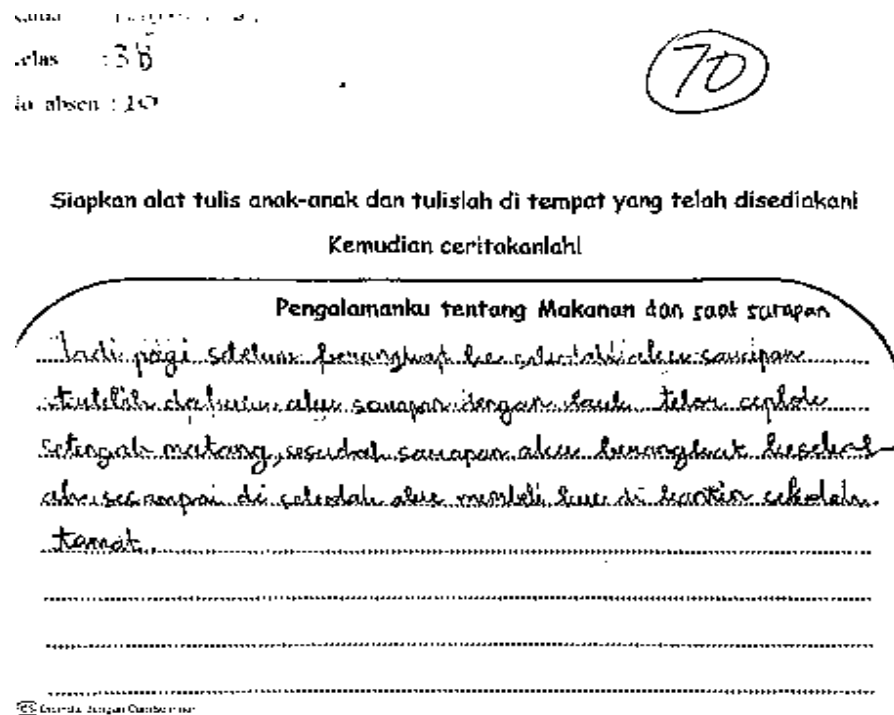 elas : 3B
absen : 10
70
Siapkan alat tulis anak-anak dan tulislah di tempat yang telah disediakan!
Kemudian ceritakanlah!
Pengalamanku tentang Makanan dan saat sarapan
Tadi pagi sebelum berangkat ke sekolah aku sarapan
terlebih dahulu aku sarapan dengan lauk telor ceplok
setengah matang, sesudah sarapan aku berangkat kesekol-
ah sesampai di sekolah aku membeli kue di kantin sekolah.
tamat.
CS dengan